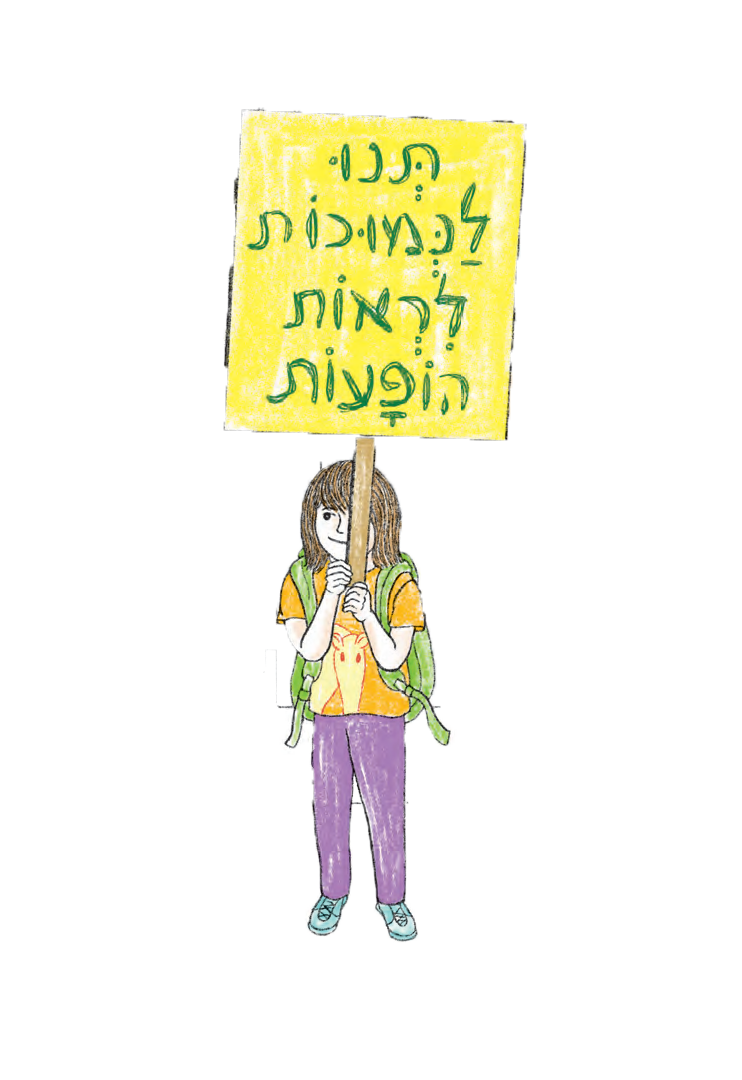 תְּנוּ
לַנְּמוּכוֹת
לִרְאוֹת
הוֹפָעוֹת